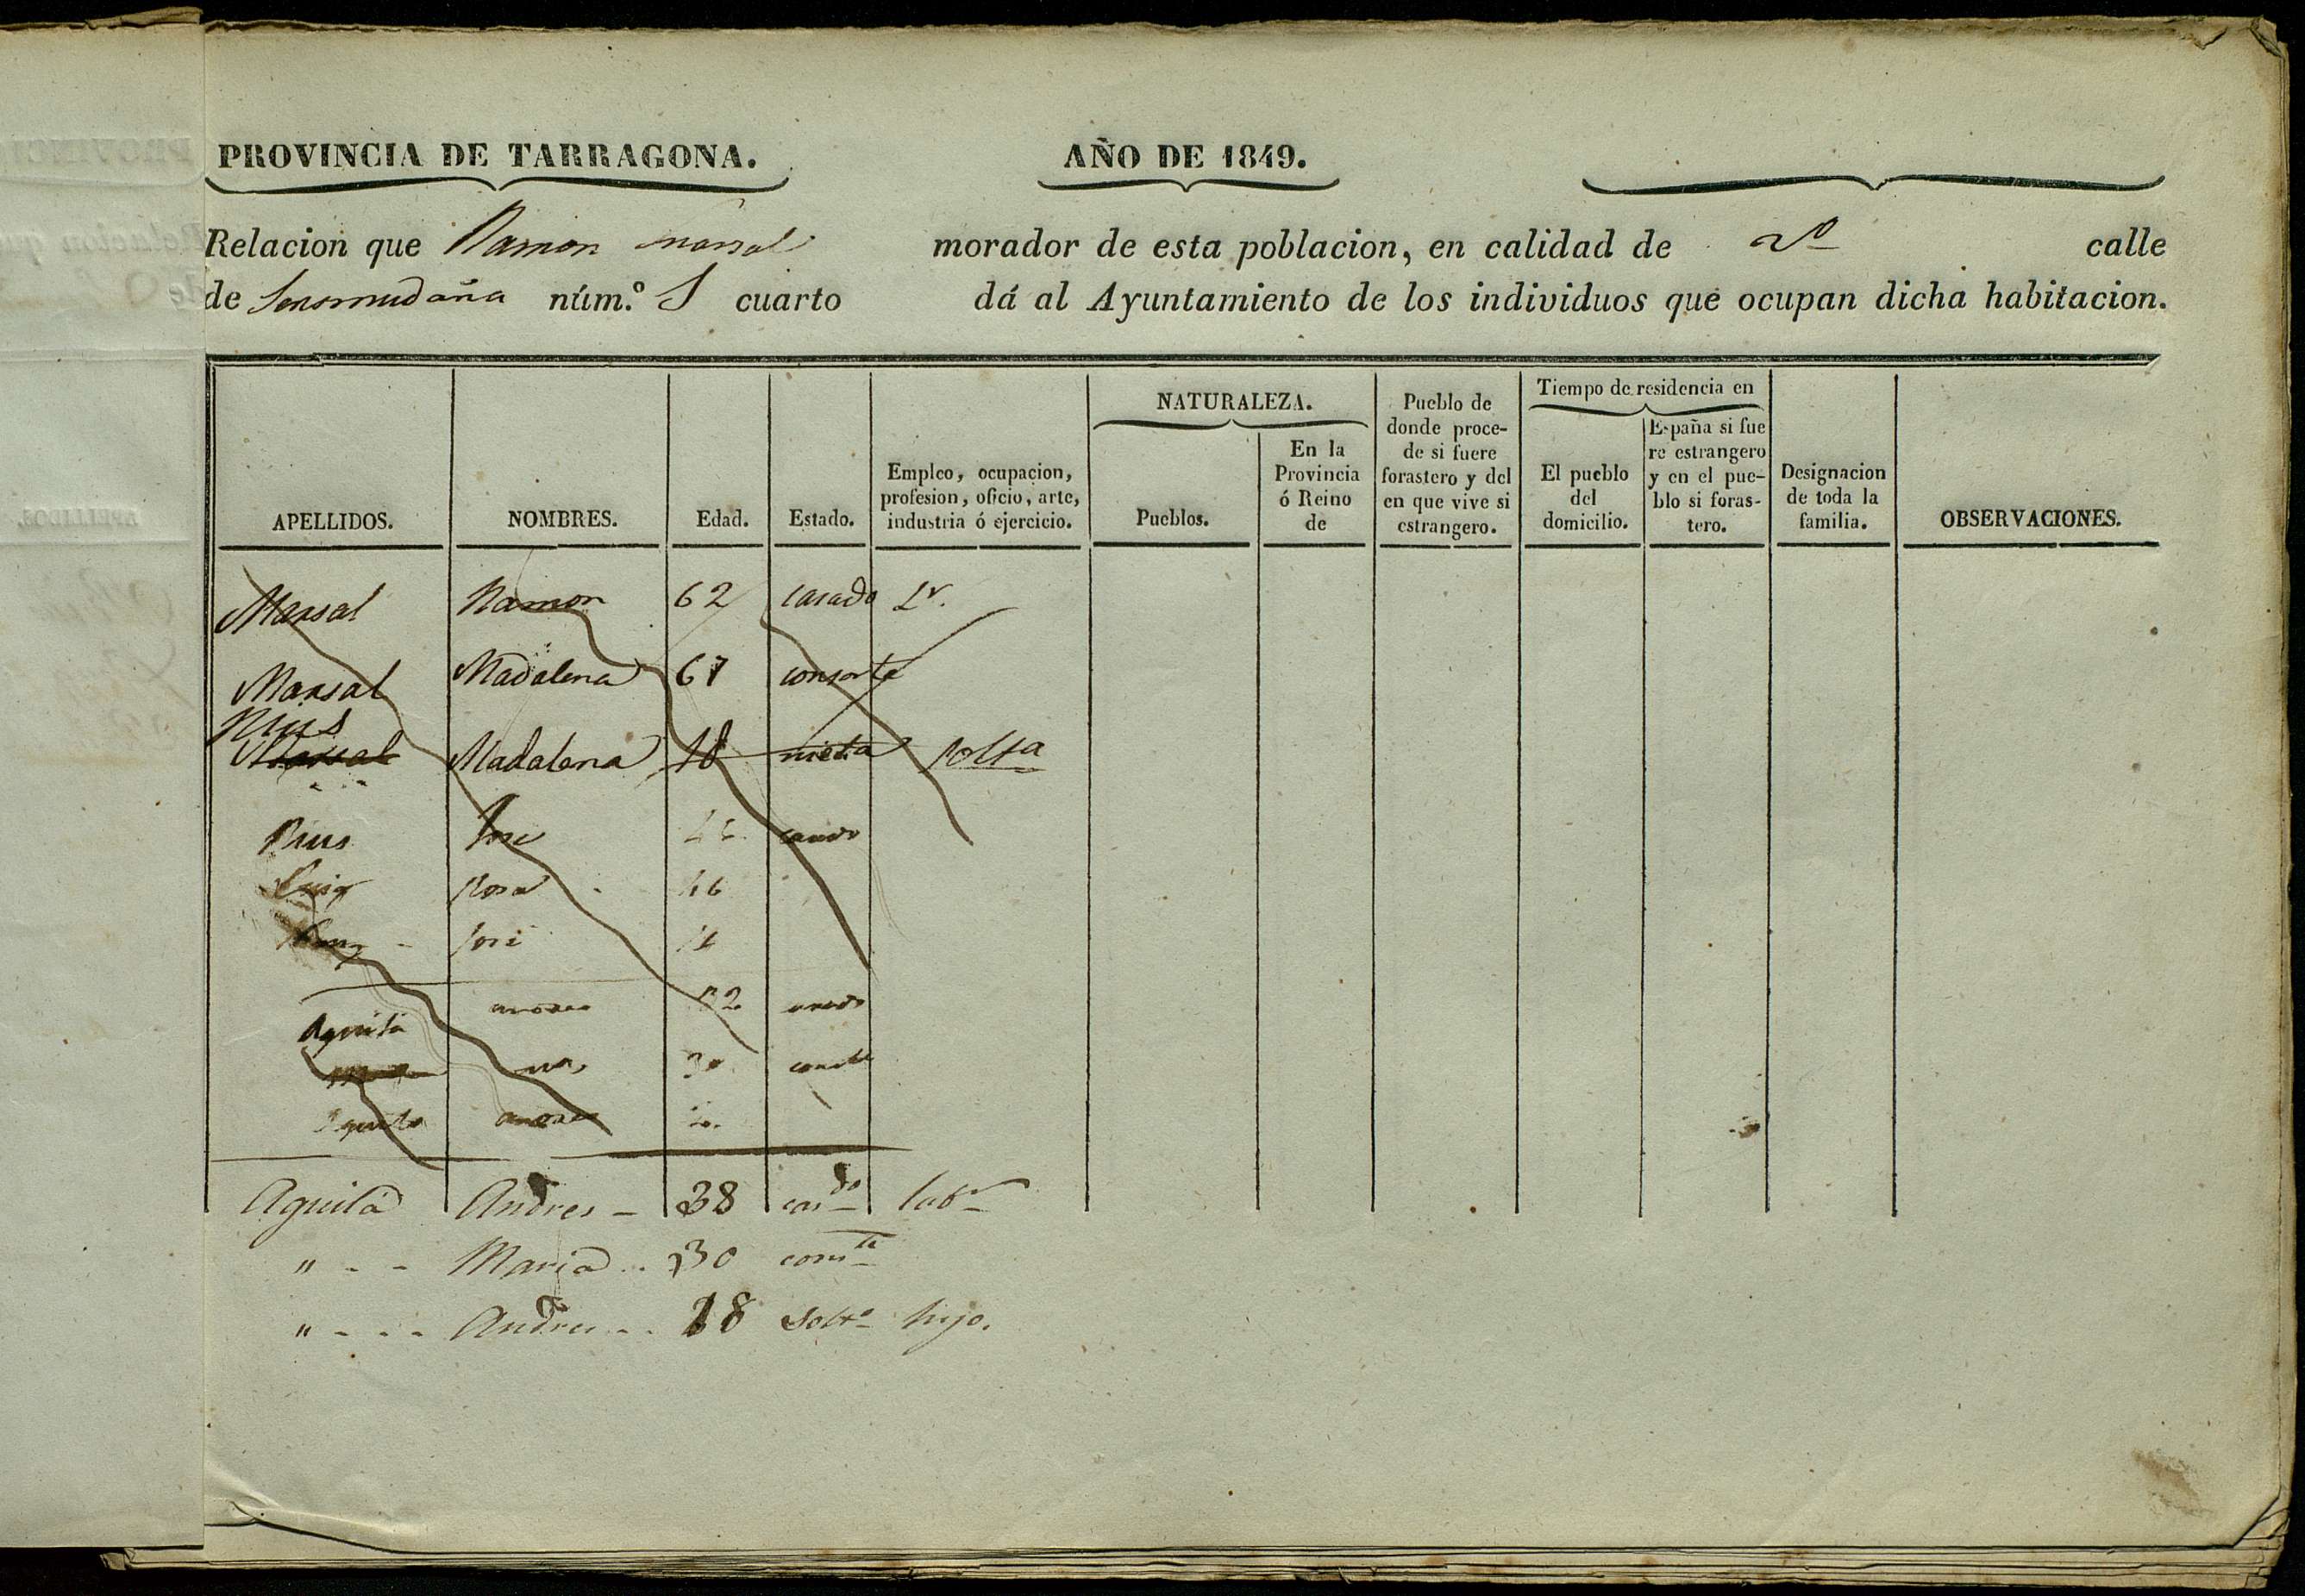 PROVINCIA DE TARRAGONA. AÑO DE 1849.
Relacion que Ramon marsal morador de esta poblacion, en calidad de calle
de núm.º cuarto dá al Ayuntamiento de los individuos que ocupan dicha habitacion.
APELLIDOS.
NOMBRES.
Edad.
Estado.
Empleo, ocupacion,
profesion, oficio, arte,
industria ó ejercicio.
NATURALEZA.
Pueblos.
En la
Provincia
ó Reino
de
Pueblo de
donde proce-
de si fuere
forastero y del
en que vive si
estrangero.
Tiempo de residencia en
El pueblo
del
domicilio.
España si fue
re estrangero
y en el pue-
blo si foras-
tero.
Designacion
de toda la
familia.
OBSERVACIONES.
Marsal Ramon 62 casado Lr.
Marsal Madalena consorte
Marsal Madalena 18 nieta solta
Jose casado
Puig Rosa
Jose
Aguilá
Aguilá Andres - 38 casdo labr
" - - Maria 30 conste
" - - - Andreu - - 18 solto hijo.